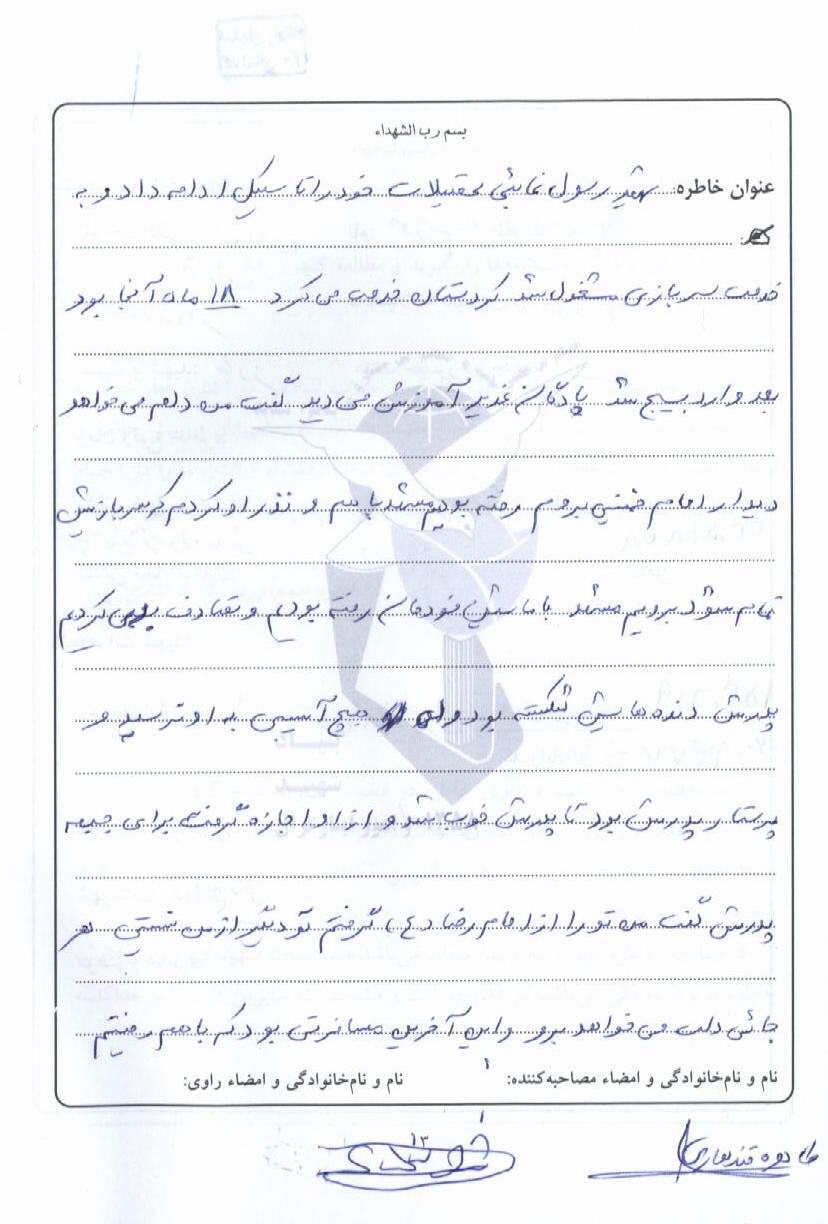 بسم رب الشهداء
عنوان خاطره: شهید رسول نمائی تحصیلات خود را تا سیکل ادامه داد و به
خدمت سربازی مشغول شد کردستان خدمت می کرد ۱۸ ماه آنجا بود
بعد وارد بسیج شد پادگان غدیر آموزش می دید گفت من دلم می خواهد
دیدار امام خمینی بروم رفته بودیم مشهد و نذر او کردم که سربازیش
تمام شود برویم مشهد با ماشین خودمان رفته بودیم و تصادف کردیم
پدرش دنده هایش شکسته بود ولی هیچ آسیبی به او نرسید و
پرستار پدرش بود تا پدرش خوب شد و از او اجازه گرفت برای جبهه
پدرش گفت من تو را از امام رضا (ع) گرفتم تو دیگر از من نیستی هر
جائی دلت می خواهد برو و این آخرین مسافرتی بود که با هم رفتیم
نام و نام‌خانوادگی و امضاء مصاحبه‌کننده:
نام و نام‌خانوادگی و امضاء راوی:
۱۳